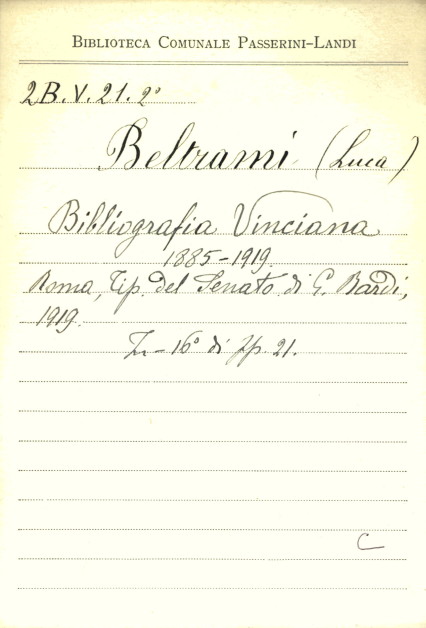 BIBLIOTECA COMUNALE PASSERINI-LANDI
2B.V.21.2°
Beltrami (Luca)
Bibliografia Vinciana
1885-1919.
Roma, Tip. del Senato di G. Bardi,
1919.
In-16° di pp. 21.
C